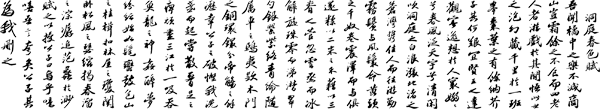 洞庭春色賦
吾聞橘中之樂不減商
山豈霜餘之不食而四老
人者游戲於其間悟此世
之泡幻藏千里於一斑
舉棗葉之有餘納芥
子其何艱宜賢王之達
觀寄逸想於人寰嫋嫋
兮春風泛天宇兮清閑
吹洞庭之白浪漲北渚之
蒼灣攜佳人而往游勤
霧鬢與風鬟命黃頭
之千奴卷震澤而與俱
還糅以二米之禾藉以三
脊之菅忽雲烝而冰
解旋珠零而涕潸翠
勺銀罌紫絡青綸隨
屬車之鴟夷款木門
之銅鐶分帝觴之餘
瀝幸公子之破慳我洗
盞而起嘗散腰足之痺
頑盡三江於一吸吞
魚龍之神姦醉夢
紛紜始如髦蠻鼓包山
之桂楫扣林屋之瓊關
臥松風之瑟縮揭春溜
之淙潺追范蠡於渺
賦之以授公子曰烏乎
噫嘻吾言夸矣公子其
為我刪之